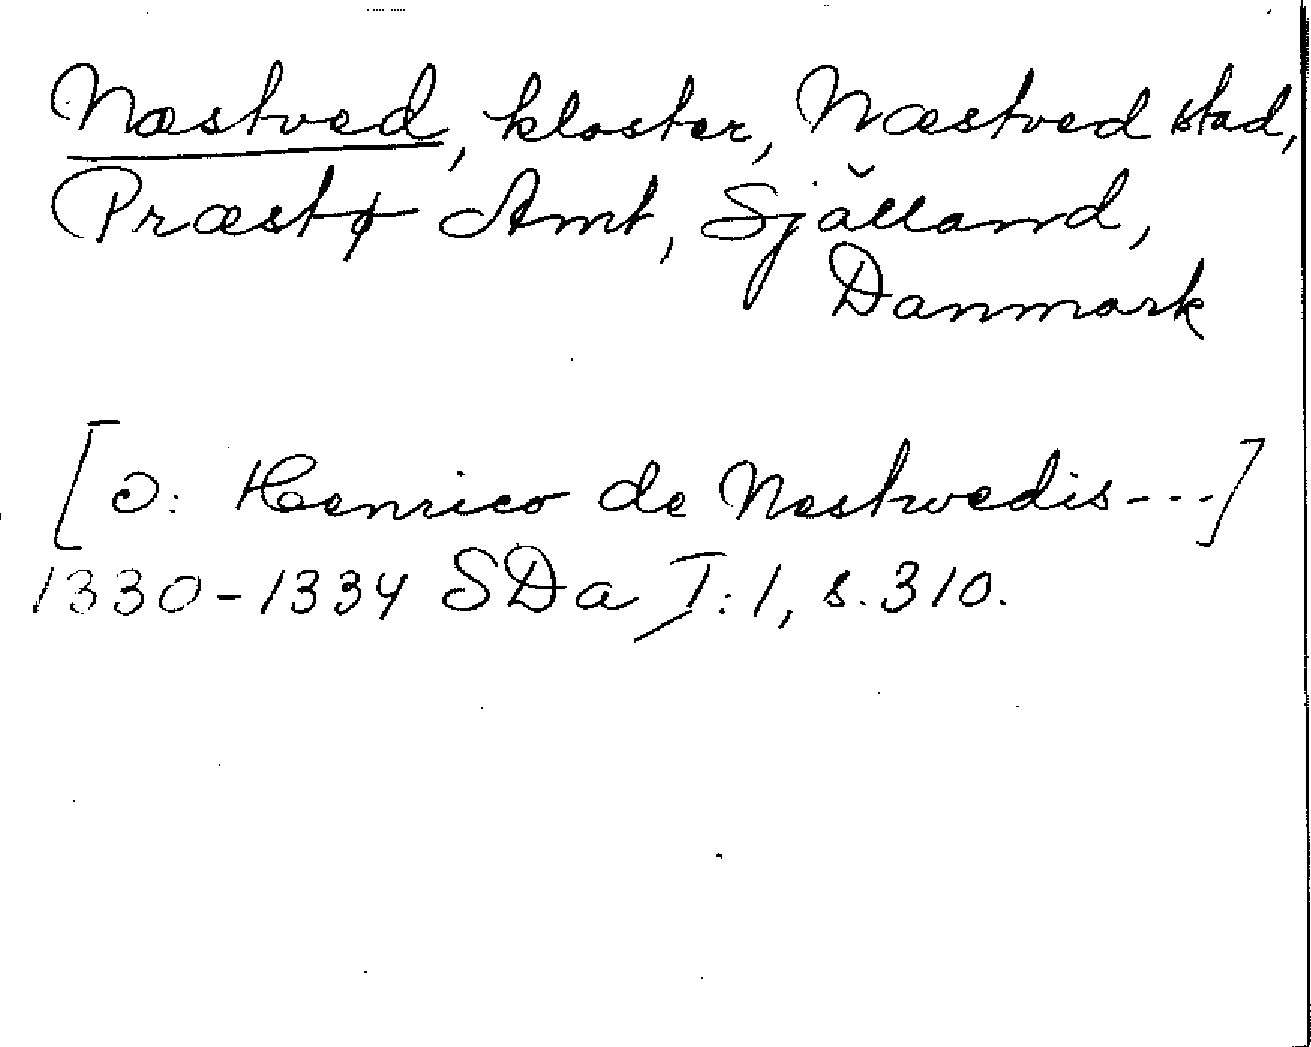 Næstved, kloster, Næstved stad,
Præstø Amt, Själland,
Danmark
[ɔ: Henrico de Nestwedis---]
1330-1334 SDa I:1, s. 310.